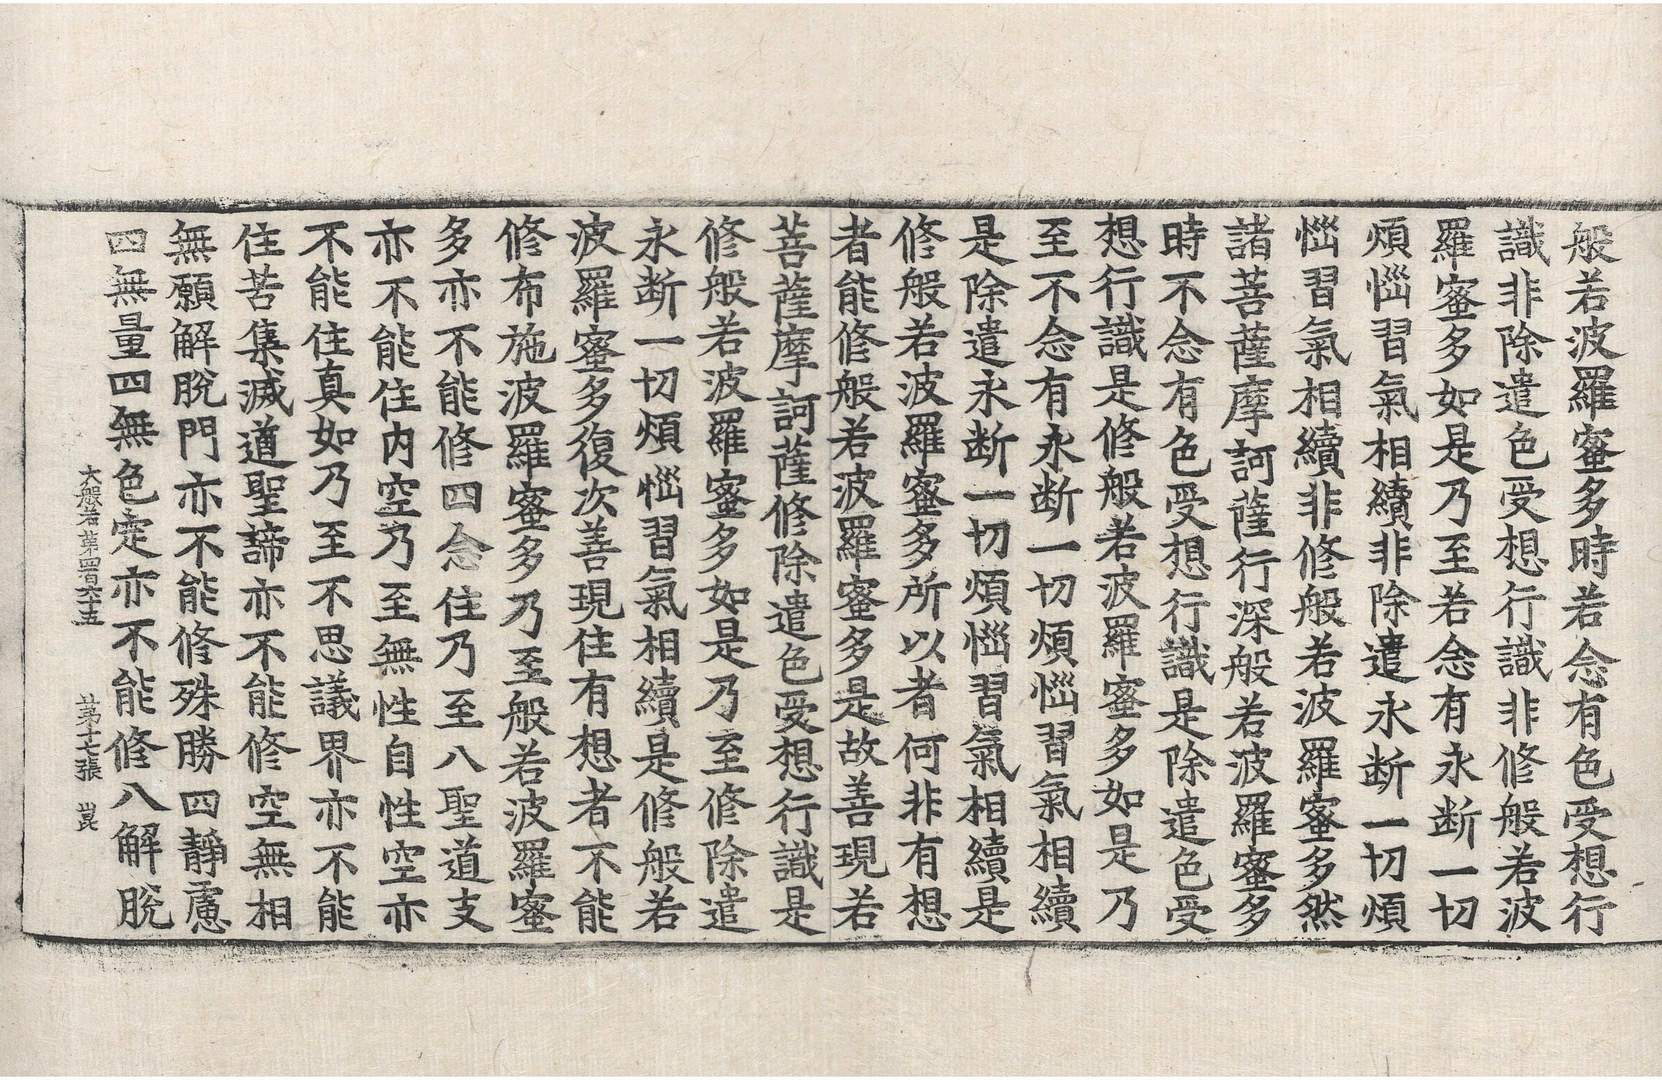 般若波羅蜜多時若念有色受想行
識非除遣色受想行識非修般若波
羅蜜多如是乃至若念有永断一切
煩惱習氣相續非除遣永断一切煩
惱習氣相續非修般若波羅蜜多然
諸菩薩摩訶薩行深般若波羅蜜多
時不念有色受想行識是除遣色受
想行識是修般若波羅蜜多如是乃
至不念有永断一切煩惱習氣相續
是除遣永断一切煩惱習氣相續是
修般若波羅蜜多所以者何非有想
者能修般若波羅蜜多是故善現若
菩薩摩訶薩修除遣色受想行識是
修般若波羅蜜多如是乃至修除遣
永断一切煩惱習氣相續是修般若
波羅蜜多復次善現住有想者不能
修布施波羅蜜多乃至般若波羅蜜
多亦不能修四念住乃至八聖道支
亦不能住内空乃至無性自性空亦
不能住真如乃至不思議界亦不能
住苦集滅道聖諦亦不能修空無相
無願解脫門亦不能修殊勝四靜慮
四無量四無色定亦不能修八解脫
大般若第四百六十五　第十七張　崑